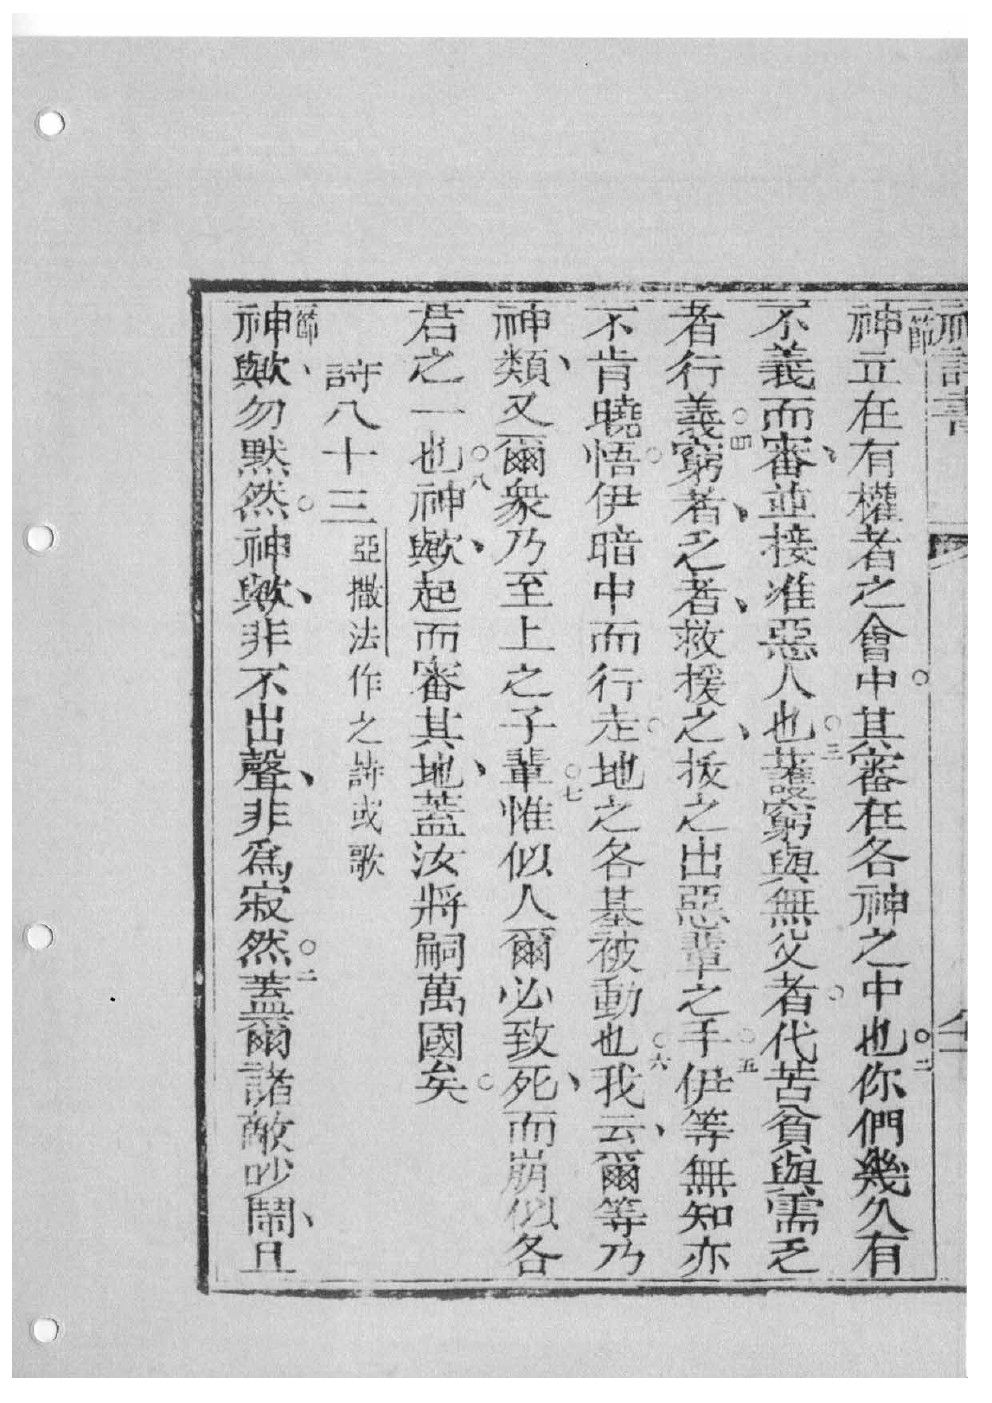 神詩書
一節
神立在有權者之會中。其審在各神之中也。二你們幾久有
不義而審、並接准惡人也。三護窮與無父者。代苦貧與需乏
者行義。四窮者、乏者、救援之、拔之出惡輩之手。五伊等無知亦
不肯曉悟。伊暗中而行走。地之各基被動也。六我云、爾等乃
神類、又爾衆乃至上之子輩。七惟似人爾必致死、而崩似各
君之一也。八神歟、起而審其地、蓋汝將嗣萬國矣。
詩八十三 亞撒法作之詩或歌
一節
神歟、勿默然。神歟、非不出聲、非爲寂然。二蓋爾諸敵吵鬧、且